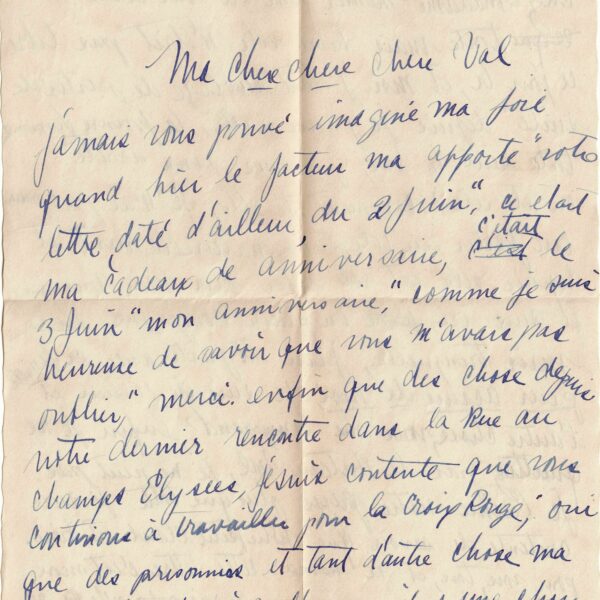 Ma chere chere chere Val
jamais vous pouvé imaginé ma joie
quand hier le facteur ma apporté votre
lettre daté d'ailleur, du 2 Juin", ce etait
ma càdeaux de anniversaire, c'est c'etait le
3 Juin" mon anniversaire," comme je suis
heureuse de savoir que vous m'avais pas
oublier," merci. enfin que des chose depuis
notre dernier rencontre dans la Rue au
champs Élysees, jesuis contente que vous
continous à travailler pour la Croix Rouge, oui
que des prisonnies et tant d'autre chose ma
une chose